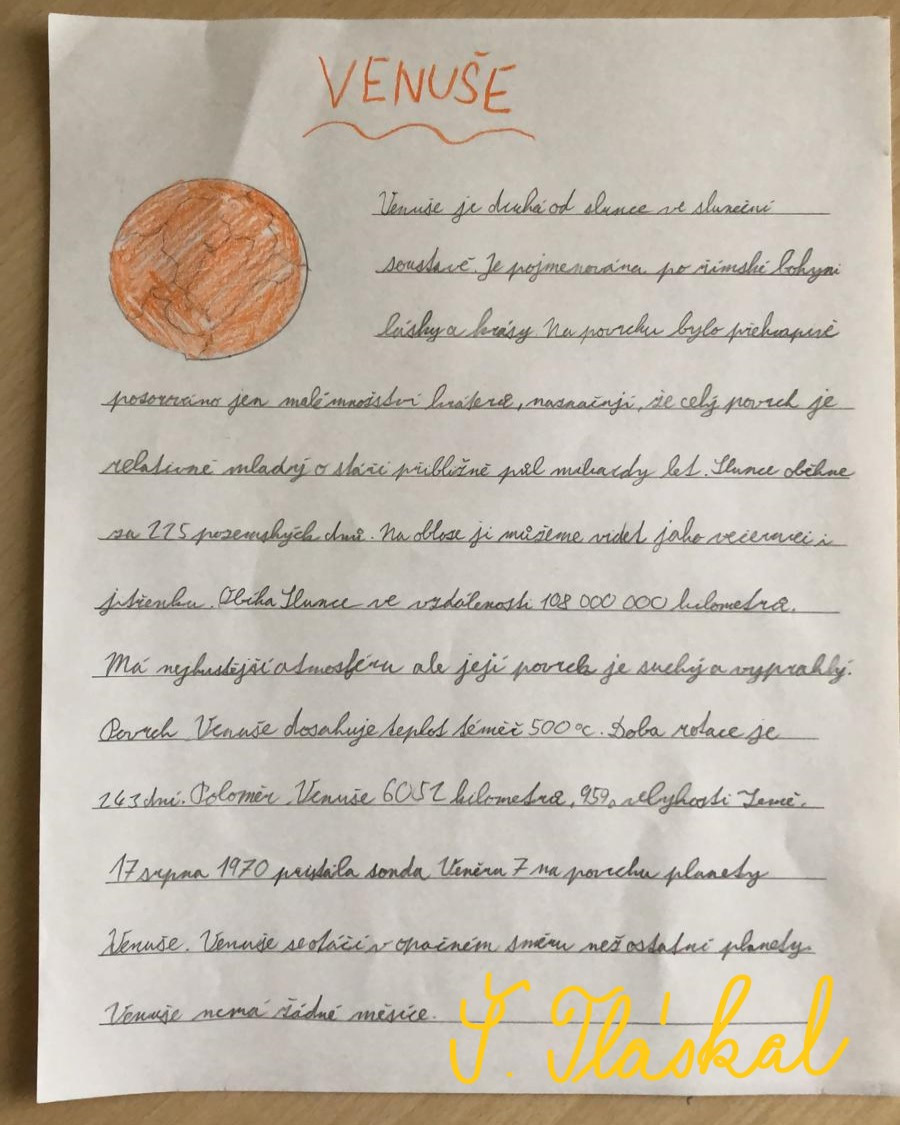 VENUŠE
Venuše je druhá od slunce ve sluneční
soustavě. Je pojmenována po římské bohyni
lásky a krásy. Na povrchu bylo překvapivě
pozorováno jen malé množství kráterů, naznačují, že celý povrch je
relativně mladý o stáří přibližně půl miliardy let. Slunce oběhne
za 225 pozemských dnů. Na obloze ji můžeme videt jako večernici i
jitřenku. Obíhá Slunce ve vzdálenosti 108 000 000 kilometrů.
Má nejhustější atmosféru ale její povrch je suchý a vyprahlý.
Povrch Venuše dosahuje teplot téměř 500 °c. Doba rotace je
243 dní. Poloměr Venuše 6052 kilometrů, velykosti Země.
17 srpna 1970 pristála sonda Venera 7 na povrchu planety
Venuše. Venuše se otáčí v opačném směru než ostatní planety.
Venuše nemá žádné měsíce.
Š. Tláskal